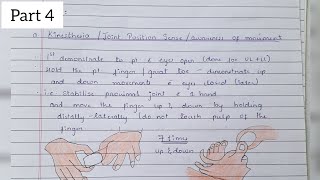 Part 4
a Kinesthesia / Joint Position Sense / awareness of movement
1st demonstrate to pt c̄ eyes open (done for UL + LL)
Hold the pt finger / great toe - demonstrate up
and down movements c̄ eye closed
i.e Stabilise proximal joint c̄ 1 hand
and move the finger up & down by holding
distally - laterally (do not touch pulp of the
finger
7 times
up & down